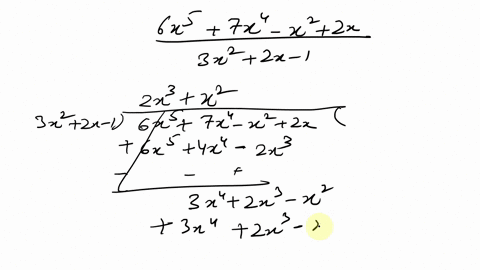 6x⁵ + 7x⁴ - x² + 2x
3x² + 2x - 1
2x³ + x²
3x² + 2x - 1) 6x⁵ + 7x⁴ - x² + 2x (
+ 6x⁵ + 4x⁴ - 2x³
- - +
3x⁴ + 2x³ - x²
+ 3x⁴ + 2x³ -